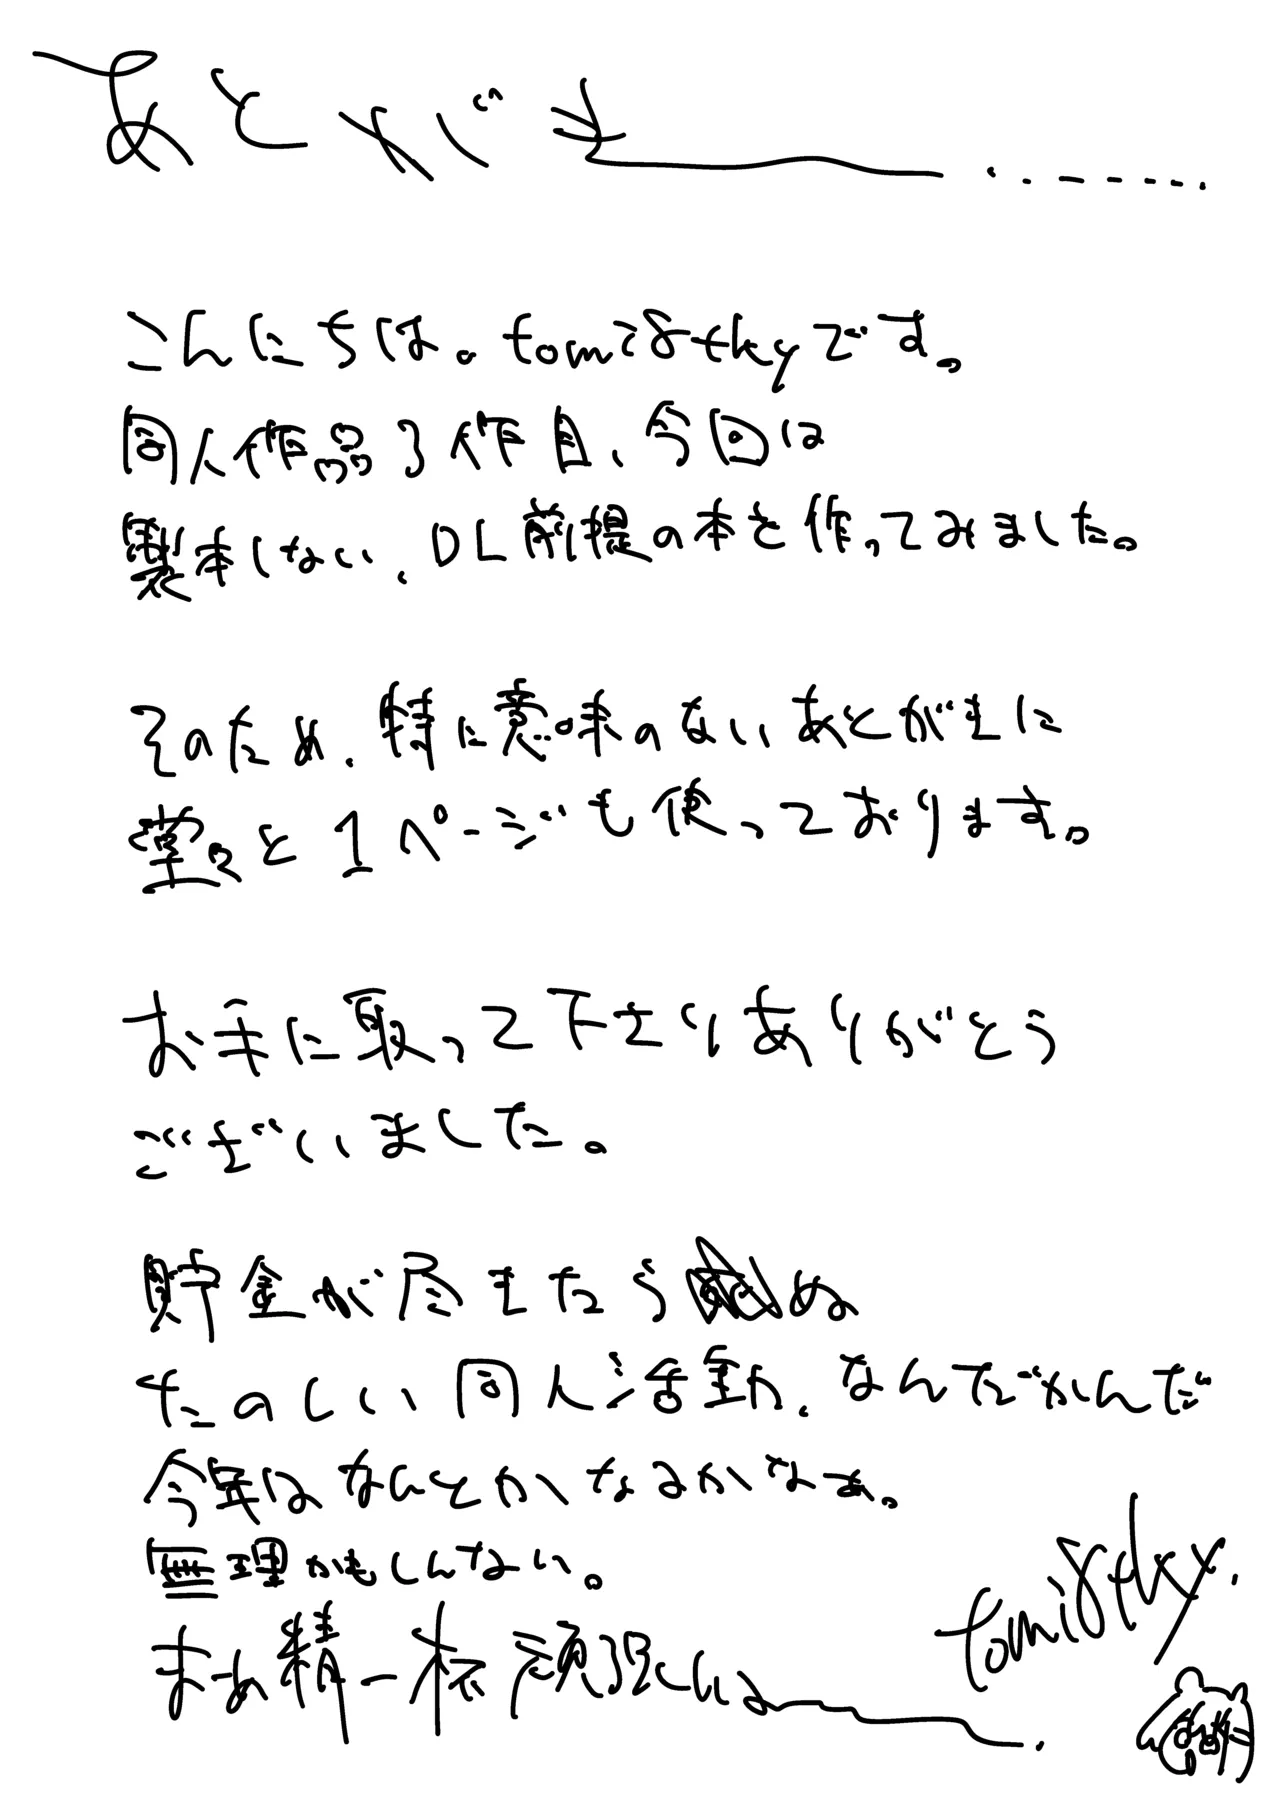 あとがき
こんにちは。tomi8tkyです。
同人作品3作目、今回は
製本しない、DL前提の本を作ってみました。
そのため、特に意味のないあとがきに
堂々と1ページも使っております。
お手に取って下さりありがとう
ございました。
貯金が尽きたら ぬ
たのしい同人活動、なんだかんだ
今年はなんとかなるかなぁ。
無理かもしんない。
まぁ精一杯頑張んよ
tomi8tky.